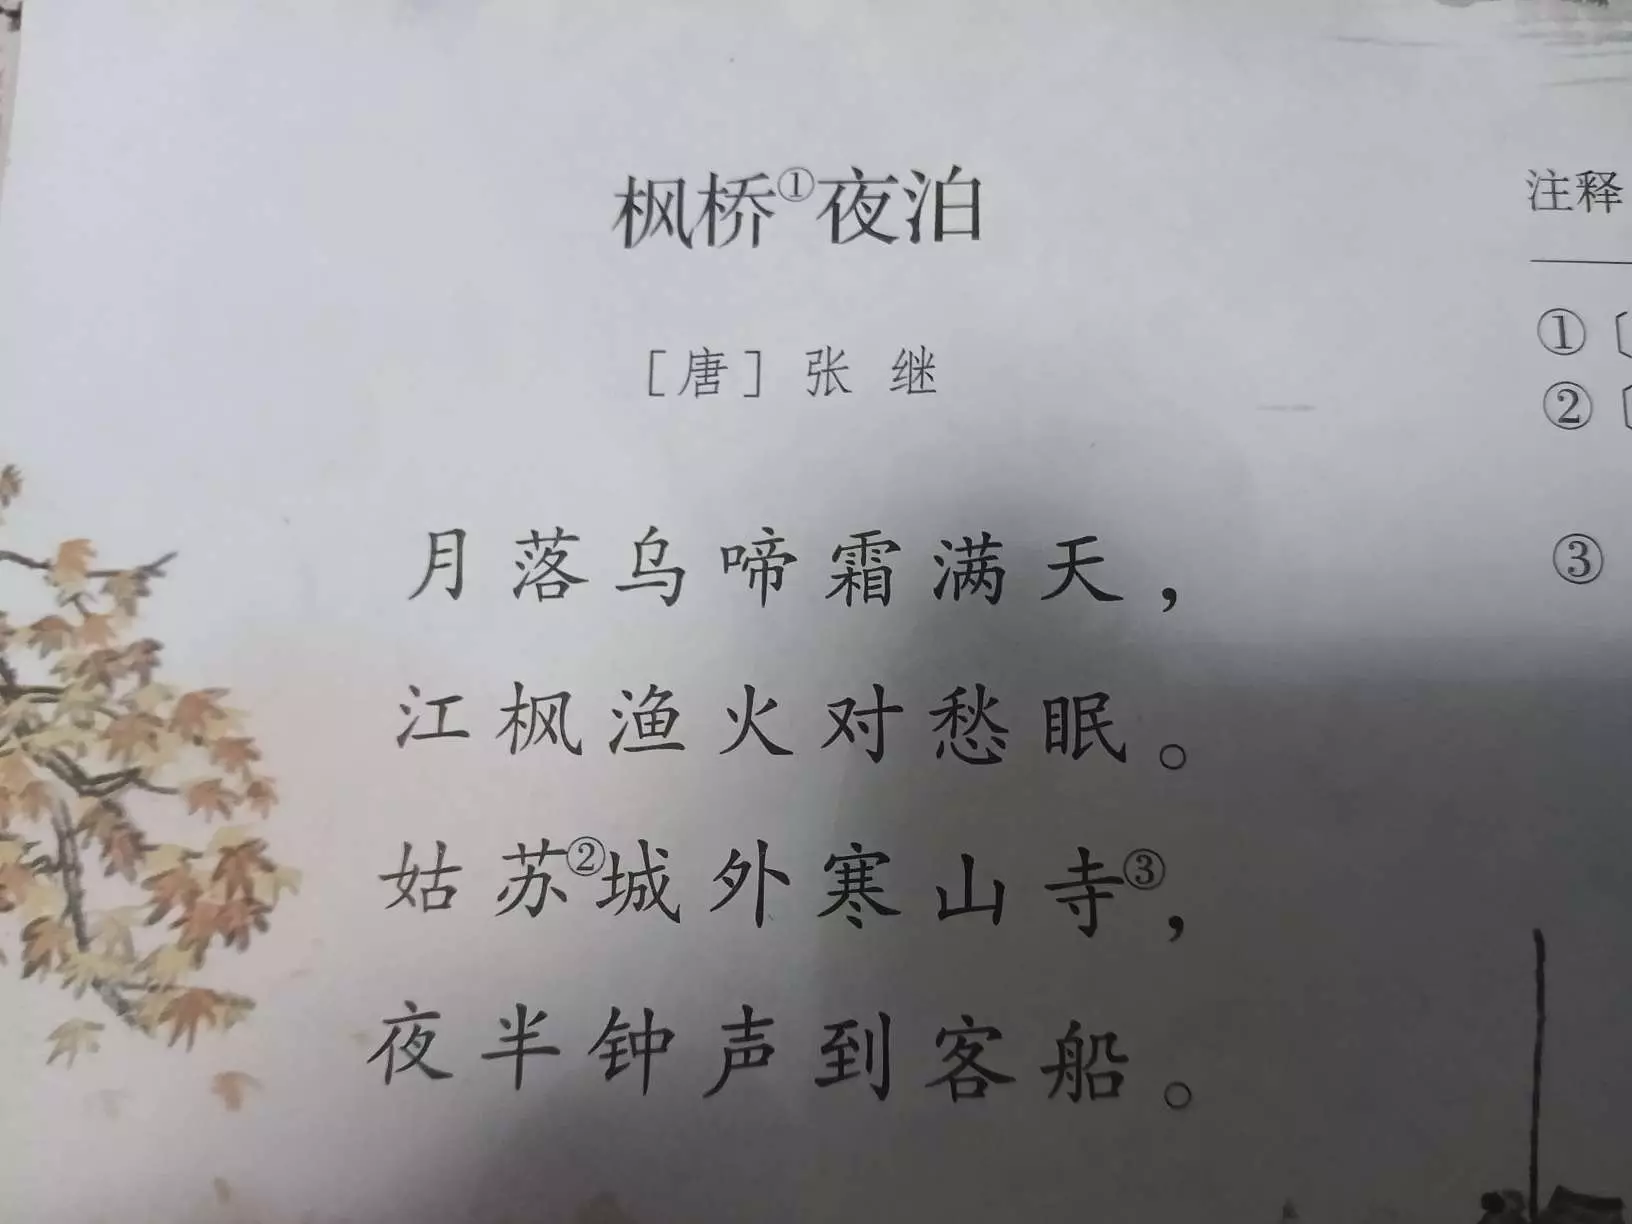 枫桥①夜泊
[唐] 张 继
月落乌啼霜满天，
江枫渔火对愁眠。
姑苏②城外寒山寺③，
夜半钟声到客船。
注释
①〔
②〔
③